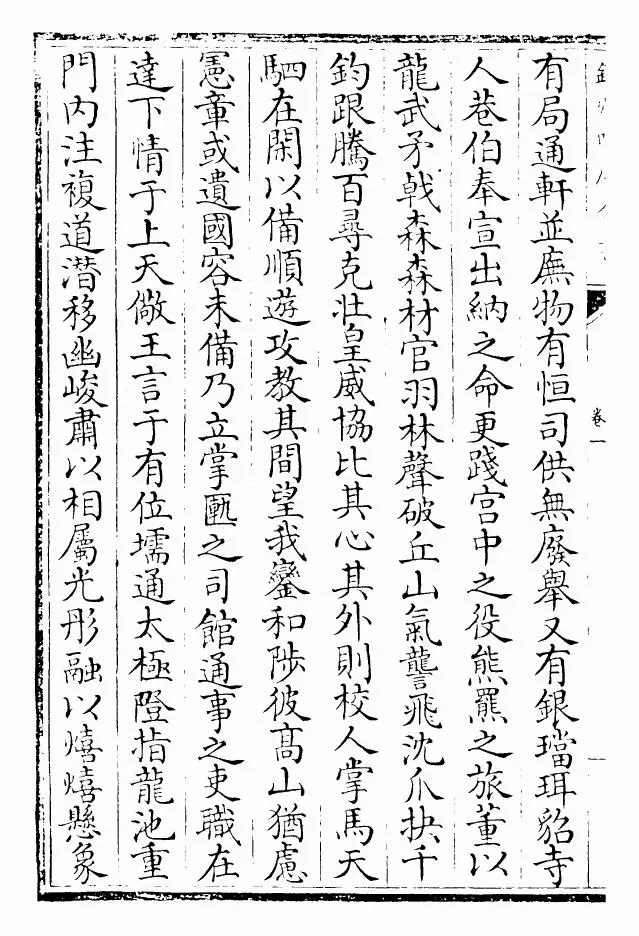 卷一
一
有局通軒並廡物有恒司供無廢舉又有銀璫珥貂寺
人巷伯奉宣出納之命更踐宫中之役熊羆之旅董以
龍武矛戟森森材官羽林聲破丘山氣讋飛沈爪抉千
鈞跟騰百尋克壯皇威協比其心其外則校人掌馬天
駟在閑以備順遊攻教其間望我鑾和陟彼髙山猶慮
憲章或遺國容未備乃立掌匭之司館通事之吏職在
達下情于上天儆王言于有位壖通太極隥指龍池重
門内注複道潛移幽峻肅以相屬光彤融以熺熺懸象